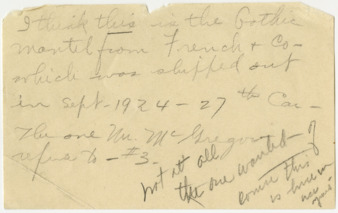 I think this is the Gothic
mantel from French & Co -
which was shipped out
in Sept - 1924 - 27th Car -
The one Mr. McGregor
refers to - #3.
not at all
the one wanted - ?
this
is